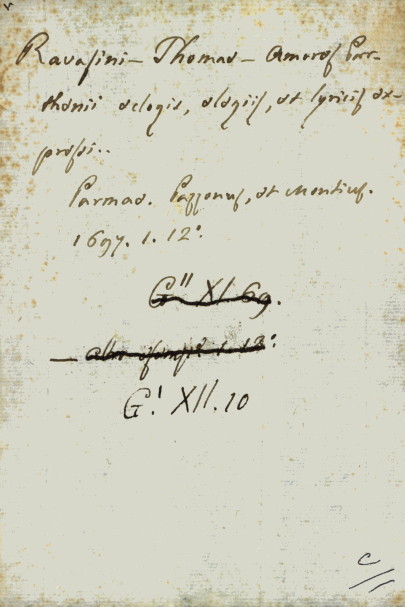 Ravasini - Thomae - Amores Par-
thenii eclogis, elegiis, et lyricis ex-
pressi..
Parmae. Pazzonus, et Montius.
1697. 1. 12°.
G" XI 69.
— altro esempl. 1. 12°
G! XII. 10
C